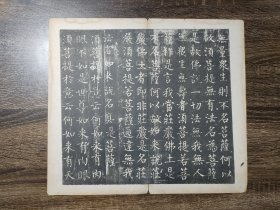 無量眾生則不名菩薩何以
故須菩提無有法名為菩薩
是故佛說一切法無我無人
無眾生無壽者須菩提若菩
薩作是言我當莊嚴佛土是
不名菩薩何以故如來說莊
嚴佛土者即非莊嚴是名莊
嚴須菩提若菩薩通達無我
法者如來說名真是菩薩
須菩提於意云何如來有肉
眼不如是世尊如來有肉眼
須菩提於意云何如來有天